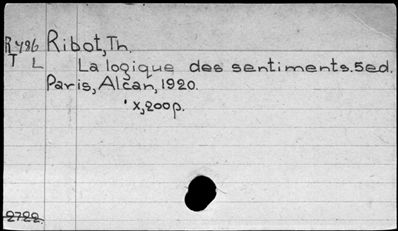 R486 Ribot, Th.
T L La logique des sentiments. 5ed.
Paris, Alcan, 1920.
x, 200p.
2722